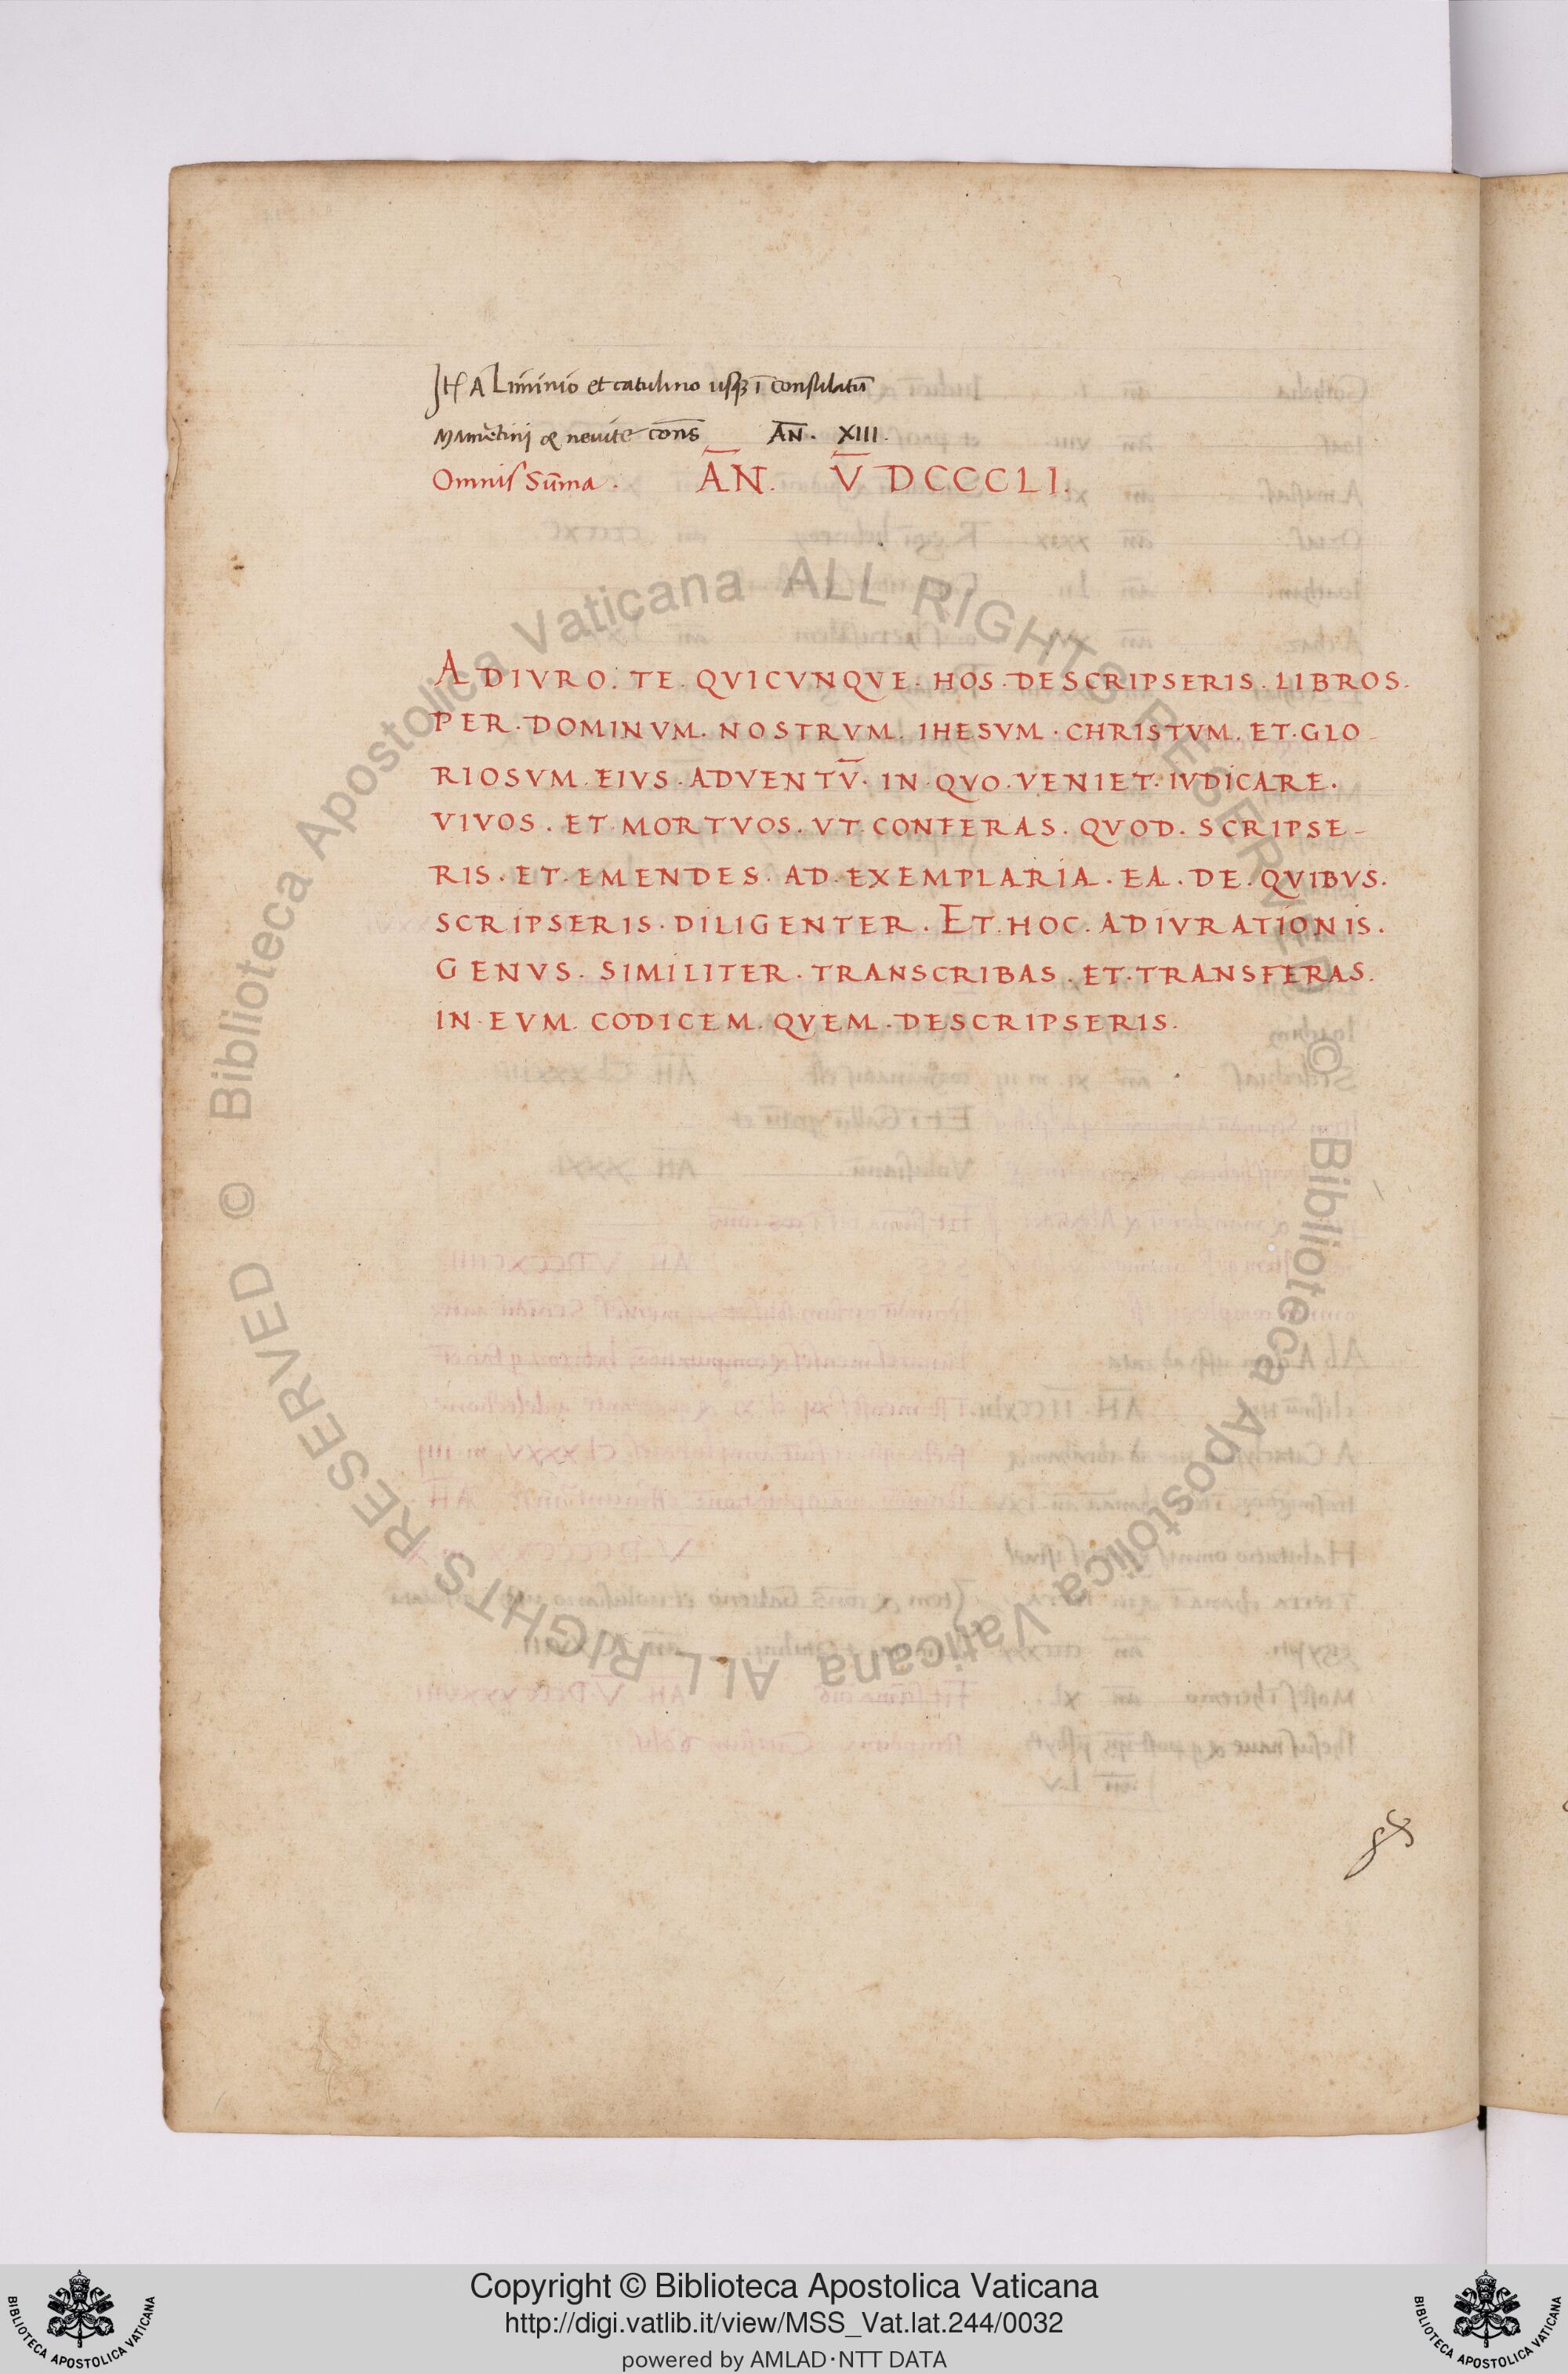 Itẽ A Liminio et catulino usqȝ ĩ consulatũ
Mamẽtini & neuite cons̄ ĀN. XIII.
Omnis Sũma. ĀN. V̄ DCCCLI.
ADIVRO. TE. QVICVNQVE. HOS. DESCRIPSERIS. LIBROS.
PER. DOMINVM. NOSTRVM. IHESVM. CHRISTVM. ET. GLO-
RIOSVM. EIVS. ADVENTV̄. IN. QVO. VENIET. IVDICARE.
VIVOS. ET. MORTVOS. VT. CONFERAS. QVOD. SCRIPSE-
RIS. ET. EMENDES. AD. EXEMPLARIA. EA. DE. QVIBVS.
SCRIPSERIS. DILIGENTER. ET. HOC. ADIVRATIONIS.
GENVS. SIMILITER. TRANSCRIBAS. ET. TRANSFERAS.
IN. EVM. CODICEM. QVEM. DESCRIPSERIS.
© Biblioteca Apostolica Vaticana ALL RIGHTS RESERVED
© Biblioteca Apostolica Vaticana ALL RIGHTS RESERVED
Copyright © Biblioteca Apostolica Vaticana
http://digi.vatlib.it/view/MSS_Vat.lat.244/0032
powered by AMLAD·NTT DATA
BIBLIOTECA APOSTOLICA VATICANA
BIBLIOTECA APOSTOLICA VATICANA